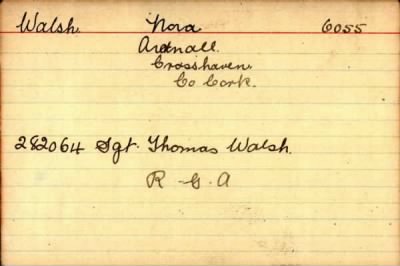 Walsh. Nora 6055
Ardnall.
Crosshaven.
Co Cork.
282064 Sgt. Thomas Walsh.
R. G. A